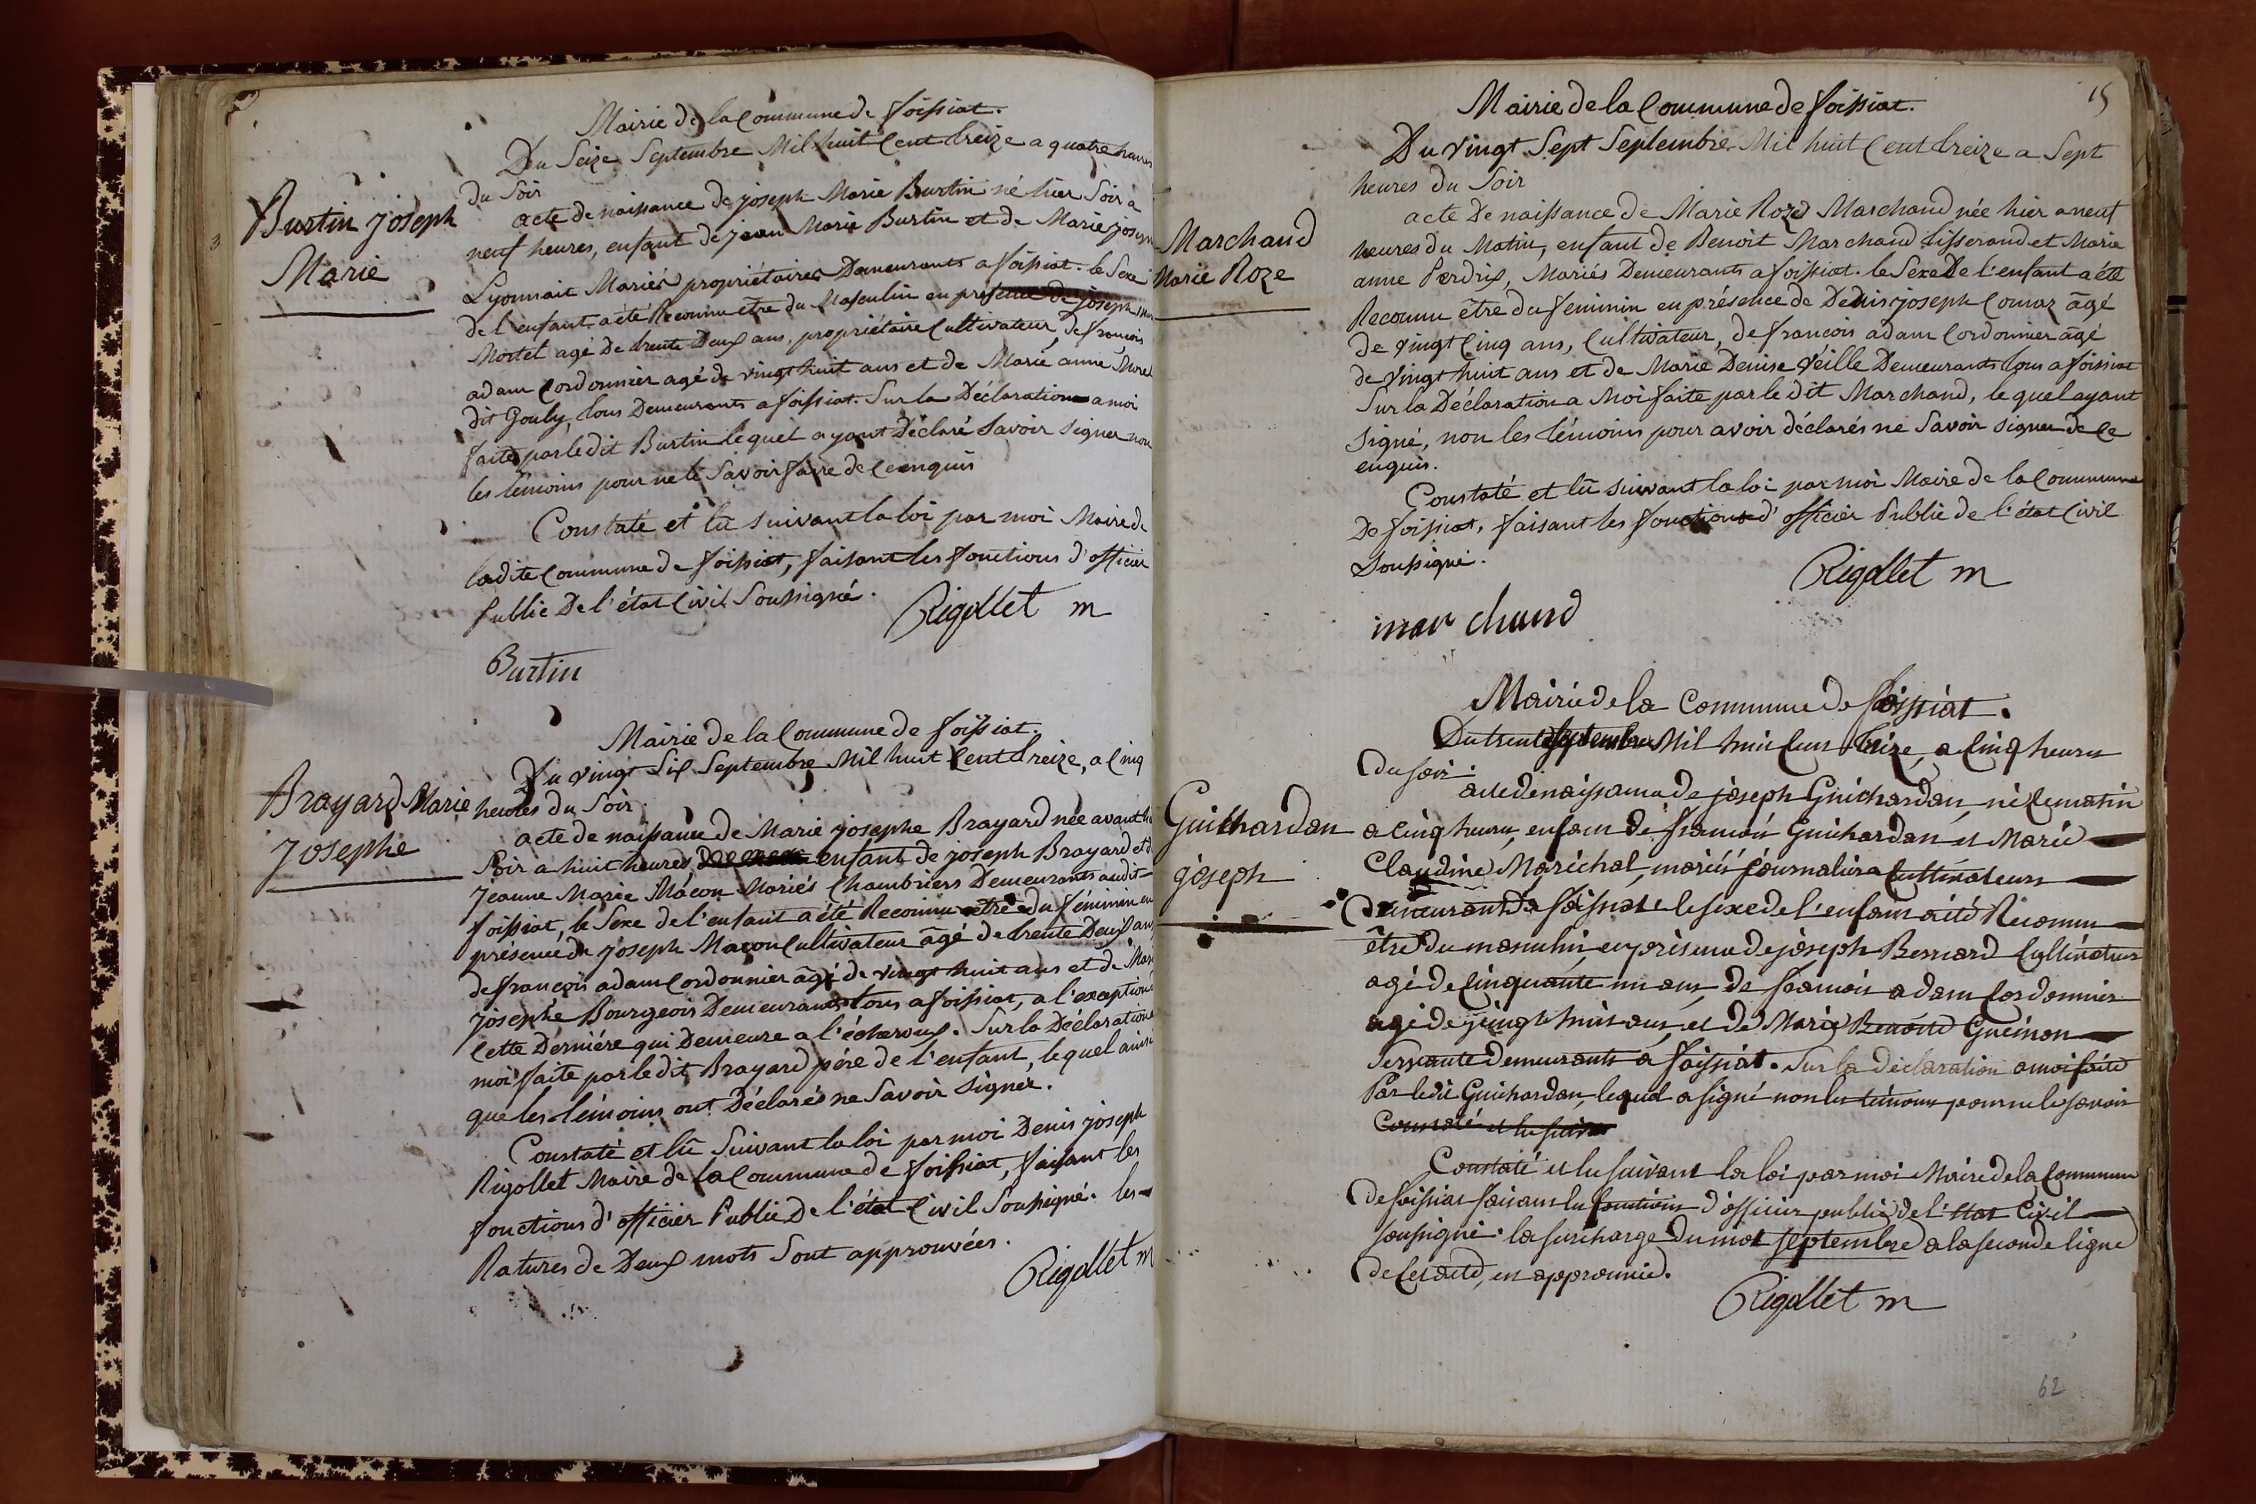 Mairie de la Commune de foissiat.
Du Seize Septembre Mil huit Cent treize a quatre heures
du Soir
Burtin joseph
Marie
acte de naissance de joseph Marie Burtin né hier Soir a
neuf heures, enfant de jean Marie Burtin et de Marie joseph
Lyonnait Mariés propriétaires Demeurants a foissiat. le Sexe
de l'enfant a été Reconnu être du Masculin en présence de joseph
Mortel agé De trente Deux ans, propriétaire Cultivateur, de françois
adam Cordonnier agé de vingt huit ans et de Marie anne Morel
dit Gouly, tous Demeurants a foissiat. Sur la Déclaration a moi
faite par le dit Burtin lequel a ayant Déclaré Savoir Signer non
les témoins pour ne le Savoir faire de Ce enquis
Constaté et lû suivant la loi par moi Maire de
ladite Commune de foissiat, faisant les fonctions d'officier
Public De l'état Civil Soussigné.
Rigollet m
Burtin
Mairie de la Commune de foissiat.
Du vingt Six Septembre Mil huit Cent treize, a Cinq
heures du Soir
Brayard Marie
josephe
acte de naissance de Marie josephe Brayard née avant hier
Soir a huit heures, enfant de joseph Brayard et de
jeanne Marie Macon Mariés Chambriers Demeurants audit
foissiat, le Sexe de l'enfant a été Reconnu être du féminin en
présence de joseph Macon Cultivateur âgé de trente Deux ans,
de françois adam Cordonnier âgé de vingt huit ans et de Marie
josephe Bourgeois Demeurants tous a foissiat, a l'exception de
Cette Derniére qui Demeure a l'écheroux. Sur la Déclaration a
moi faite par le dit Brayard pére de l'enfant, lequel ainsi
que les témoins ont Déclarés ne Savoir Signer.
Constaté et lû Suivant la loi par moi Denis joseph
Rigollet Maire de la Commune de foissiat, faisant les
fonctions d'officier Public De l'état Civil Soussigné. les
Ratures de Deux mots Sont approuvées.
Rigollet m
15
Mairie de la Commune de foissiat.
Du vingt Sept Septembre Mil huit Cent treize a Sept
heures du Soir
Marchand
Marie Roze
acte De naissance de Marie Roze Marchand née hier a neuf
heures du Matin, enfant de Benoit Marchand tisserand et Marie
anne Perdrix, Mariés Demeurants a foissiat. le Sexe De l'enfant a été
Reconnu être du feminin en présence de Denis joseph Comaz âgé
de vingt Cinq ans, Cultivateur, de francois adam Cordonnier âgé
de vingt huit ans et de Marie Denise Véille Demeurants tous a foissiat
Sur la Déclaration a Moi faite par le dit Marchand, le quel ayant
Signé, non les témoins pour avoir déclarés ne Savoir signer de Ce
enquis.
Constaté et lû suivant la loi par moi Maire de la Commune
De foissiat, faisant les fonctions d'officier Public de l'état Civil
Soussigné.
Rigollet m
mar chand
Mairie de la Commune de foissiat.
Du trente Septembre Mil huit Cent treize, a Cinq heures
du soir
Guichardan
joseph
acte de naissance de joseph Guichardan, né le matin
a cinq heures, enfant de francois Guichardan et Marie
Claudine Maréchal, mariés journaliers Cultivateurs
Demeurants a foissiat le sexe de l'enfant a été Reconnu
être du masculin, en présence de joseph Bernard Cultivateur
agé de Cinquante un ans, de francois adam Cordonnier
agé de vingt huit ans, et de Marie Benoite Guéinon
Servante demeurants à foissiat. Sur la déclaration a moi faite
Par le dit Guichardan, lequel a signé non les témoins pour ne le savoir
Constaté et lu suivant
Constaté et lu suivant la loi par moi Maire de la Commune
de foissiat faisant les fonctions d'officier public de l'état Civil
soussigné. la surcharge du mot septembre a la seconde ligne
de Cet acte, est approuvée.
Rigollet m
62